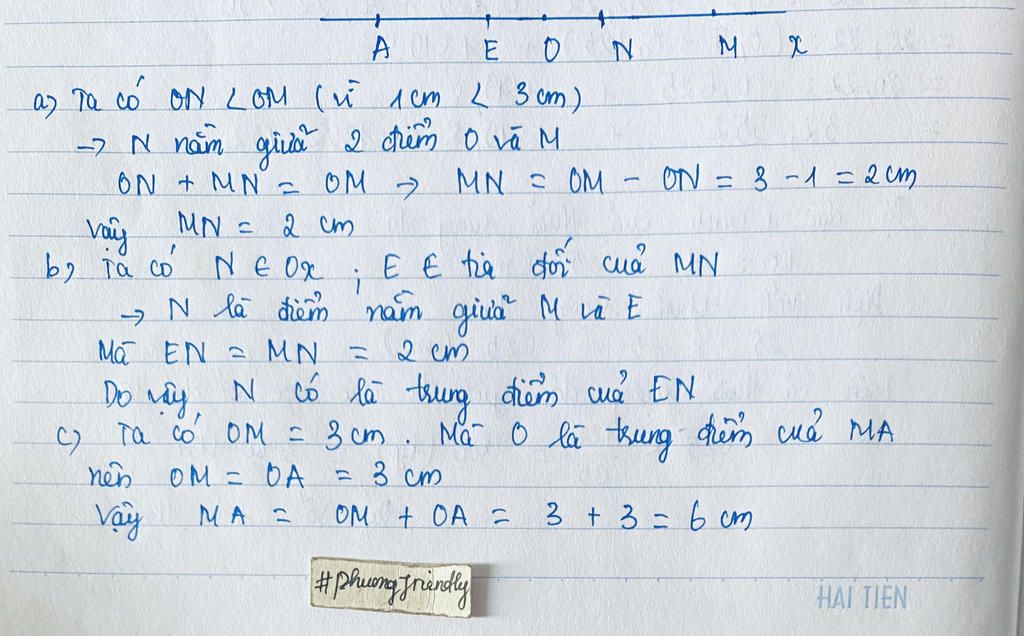 A E O N M x
a) Ta có ON < OM (vì 1cm < 3cm)
→ N nằm giữa 2 điểm O và M
ON + MN = OM → MN = OM - ON = 3 - 1 = 2 cm
Vậy MN = 2 cm
b) Ta có N ∈ Ox ; E ∈ tia đối của MN
→ N là điểm nằm giữa M và E
Mà EN = MN = 2 cm
Do vậy, N có là trung điểm của EN
c) Ta có OM = 3 cm. Mà O là trung điểm của MA
nên OM = OA = 3 cm
Vậy MA = OM + OA = 3 + 3 = 6 cm
#phuongfriendly
HẢI TIẾN